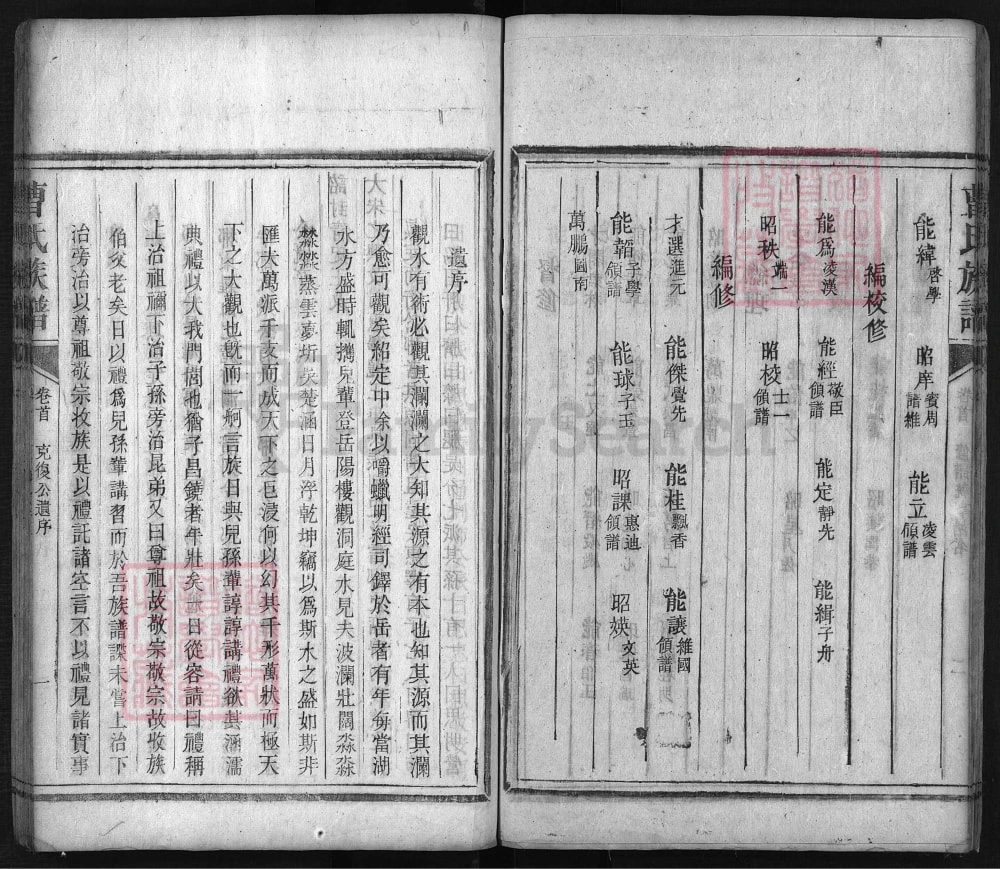 曹氏族譜
能緯 啓學 昭庠 賓周 譜維 能立 凌雲 領譜
編校修
能爲 凌漢 能經 敬臣 領譜 能定 靜先 能緝 子舟
昭秩 端一 昭校 士一 領譜
編修
才選 進元 能傑 覺先 能桂 飄香 能讓 維國 領譜
能韜 字學 領譜 能球 子玉 昭課 惠迪 領譜 昭媖 文英
萬鵬 圖南
遺序
觀水有術必觀其瀾瀾之大知其源之有本也知其源而其瀾
乃愈可觀矣紹定中余以嚼蠟明經司鐸於岳者有年每當湖
水方盛時輒攜兒輩登岳陽樓觀洞庭水見夫波瀾壯闊淼淼
焱焱蒸雲夢圻吳楚涵日月浮乾坤竊以爲斯水之盛如斯非
匯夫萬派千支而成天下之巨浸何以幻其千形萬狀而極天
下之大觀也旣而一炯言族日與兒孫輩諄諄講禮欲甚涵濡
典禮以大我門閭也猶子昌鐃者年壯矣壯日從容請曰禮稱
上治祖禰下治子孫旁治昆弟又曰尊祖故敬宗敬宗故收族
伯父老矣日以禮爲兒孫輩講習而於吾族譜諜未嘗上治下
治旁治以尊祖敬宗收族是以禮託諸空言不以禮見諸實事
曹氏族譜 卷首 克復公遺序 一
FamilySearch